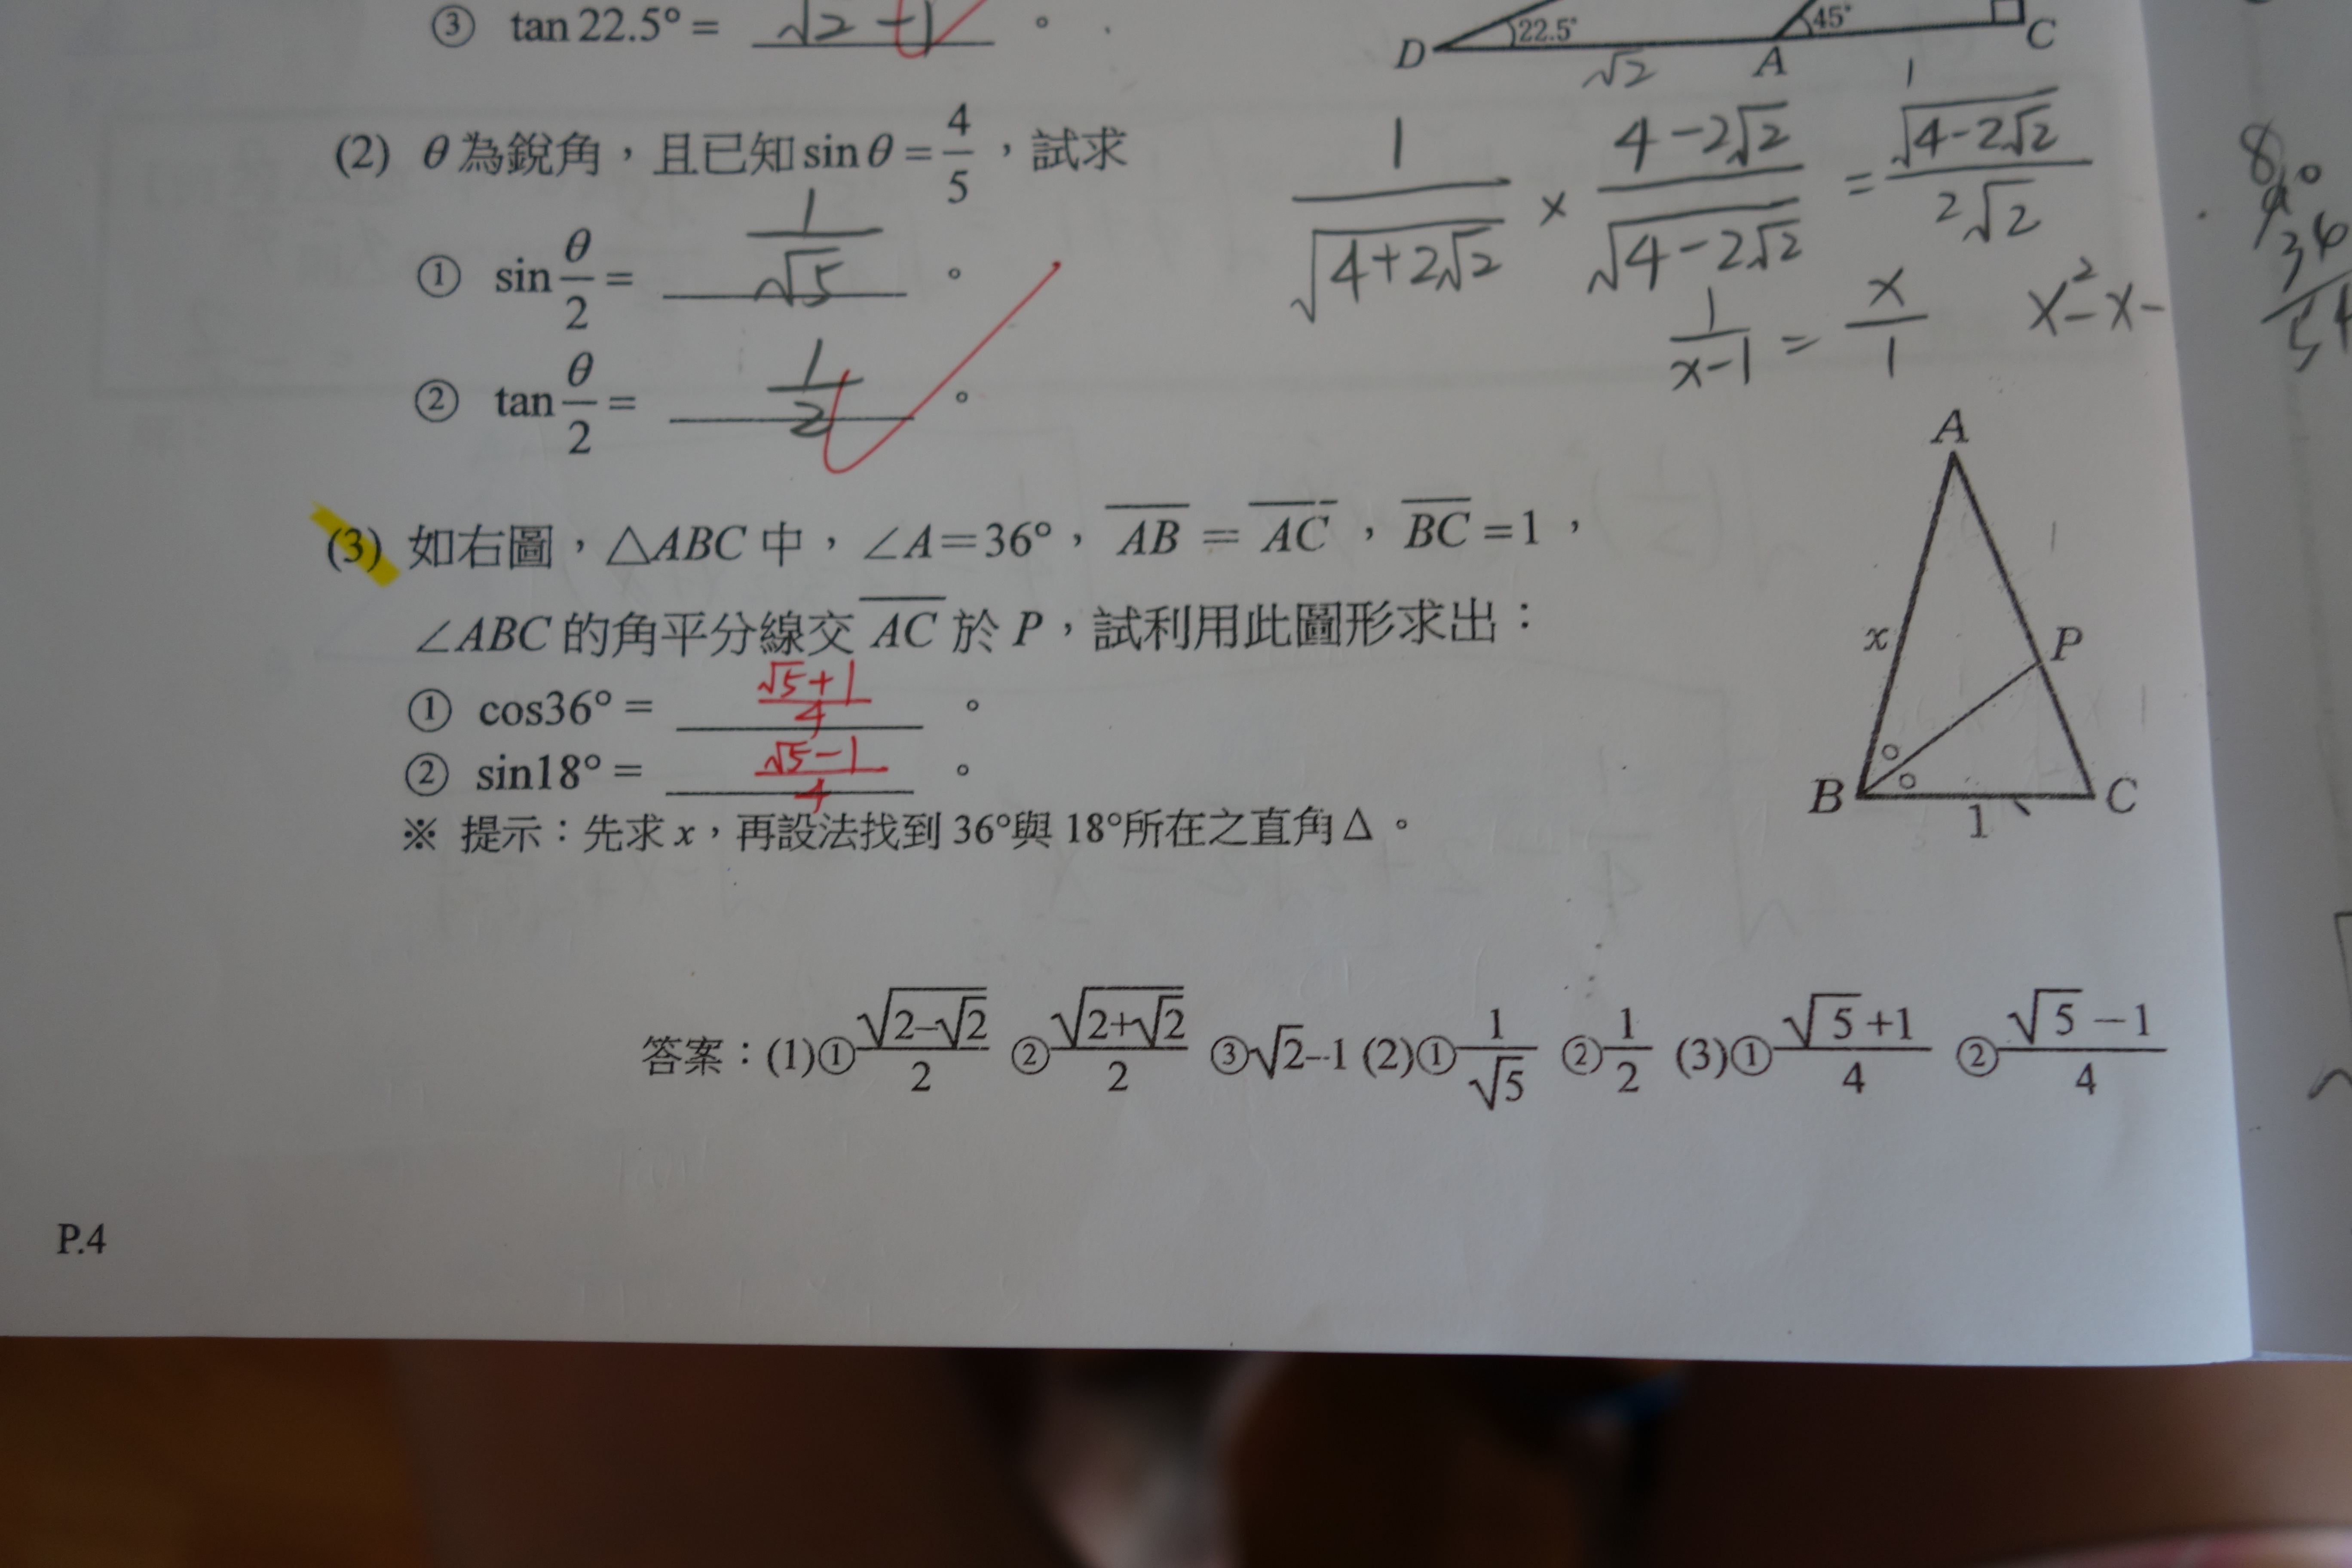 ③ tan 22.5° = √2 −1 。
22.5° 45°
D A C
√2 1
(2) θ為銳角，且已知 sin θ = 4/5，試求
① sin θ/2 = 1/√5 。
② tan θ/2 = 1/2 。
1/√(4+2√2) × (4−2√2)/√(4−2√2) = √(4−2√2)/(2√2)
1/(x−1) = x/1 x²−x−
(3) 如右圖，△ABC 中，∠A＝36°，AB = AC，BC = 1，
∠ABC 的角平分線交 AC 於 P，試利用此圖形求出：
① cos36° = (√5+1)/4 。
② sin18° = (√5−1)/4 。
※ 提示：先求 x，再設法找到 36°與 18°所在之直角Δ。
A
1
x P
B C
1
答案：(1)①√(2−√2)/2 ②√(2+√2)/2 ③√2−1 (2)①1/√5 ②1/2 (3)①(√5+1)/4 ②(√5−1)/4
P.4